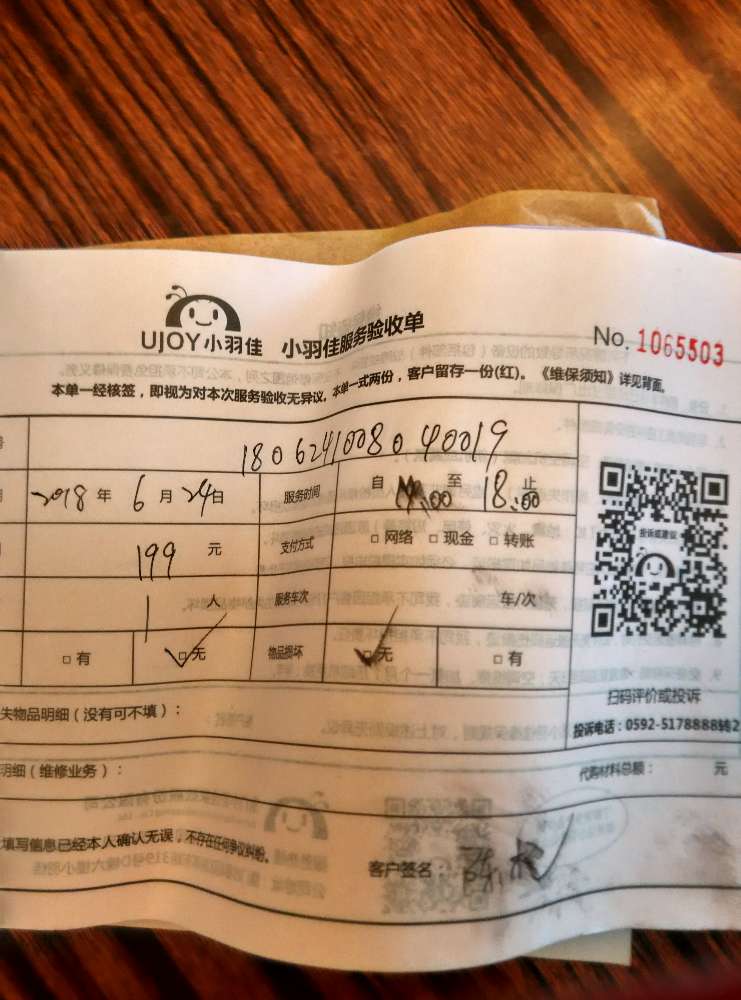 UJOY小羽佳 小羽佳服务验收单 No. 1065503
本单一经核签，即视为对本次服务验收无异议。本单一式两份，客户留存一份(红)。《维保须知》详见背面。
180624100804 0019
2018 年 6 月 24 日 服务时间 自 :00 至 18:00 止
199 元 支付方式 □ 网络 □ 现金 □ 转账
1 人 服务车次 车/次
□ 有 □ 无 物品损坏 □ 无 □ 有
投诉或建议
扫码评价或投诉
失物品明细（没有可不填）： 投诉电话：0592-5178888转2
明细（维修业务）： 代购材料总额： 元
填写信息已经本人确认无误，不存在任何争议纠纷。
客户签名：